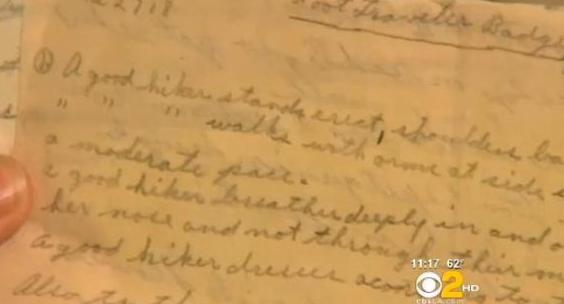 Foot Traveler Badge
① A good hiker stands erect, shoulders ba
" " " walks with arms at side
a moderate pace.
a good hiker breathes deeply in and o
her nose and not through their m
A good hiker dresses acco
Also
11:17 62°
CBS 2 HD
cbsla.com